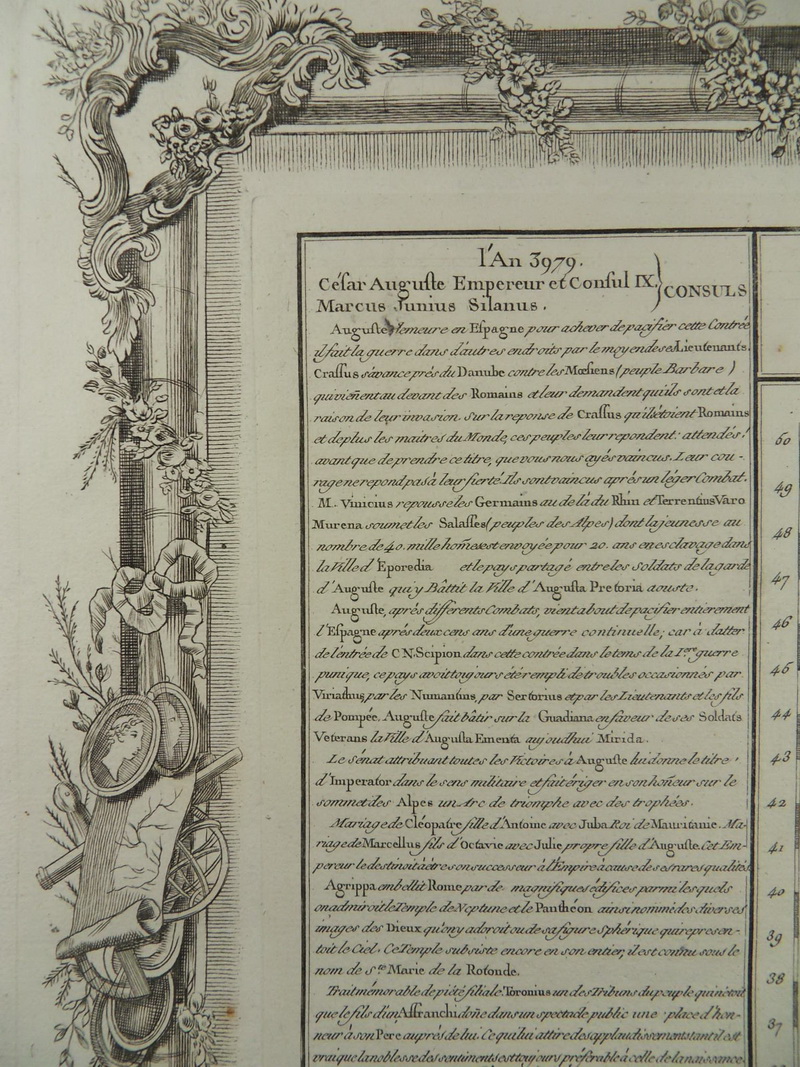 l'An 3979.
César Auguste Empereur et Consul IX.
Marcus Junius Silanus.
CONSULS
Auguste demeure en Espagne pour achever de pacifier cette Contrée
il fait la guerre dans d'autres endroits par le moyen de ses Lieutenants.
Crassus s'avance prés du Danube contre les Mœsiens (peuple Barbare)
qui viēnent au devant des Romains et leur demandent qui ils sont et la
raison de leur invasion. Sur la reponse de Crassus qu'ils étoient Romains
et de plus les maitres du Monde, ces peuples leur repondent: attendés!
avant que de prendre ce titre, que vous nous ayés vaincus. Leur cou-
rage ne repond pas à leur fierté. Ils sont vaincus aprés un léger Combat.
M. Vinicius repousse les Germains au de là du Rhin et Terrentius Varo
Murena soumet les Salasses (peuples des Alpes) dont la jeunesse au
nombre de 40. mille hōmes est envoyée pour 20. ans en esclavage dans
la Ville d'Eporedia et le pays partagé entre les Soldats de la garde
d'Auguste qui y Bâtit la Ville d'Augusta Pretoria aouste.
Auguste, aprés differents Combats, vient a bout de pacifier entierement
l'Espagne aprés deux cens ans d'une guerre continuelle; car à datter
de l'entrée de CN. Scipion dans cette contrée dans le tems de la 1ere guerre
punique, ce pays avoit toujours été rempli de troubles occasionnés par
Viriathus, par les Numantins, par Sertorius et par les Lieutenants et les fils
de Pompée. Auguste fait bâtir sur la Guadiana en faveur de ses Soldats
Veterans la Ville d'Augusta Emerita aujoudhui Mirida.
Le Sénat attribuant toutes les Victoires à Auguste lui donne le titre
d'Imperator dans le sens militaire et fait ériger en son hōneur sur le
sommet des Alpes un Arc de triomphe avec des trophées.
Mariage de Cléopatre fille d'Antoine avec Juba Roi de Mauritanie. Ma-
riage de Marcellus fils d'Octavie avec Julie propre fille d'Auguste. Cet Em-
pereur le destinoit à être son successeur à l'Empire à cause de ses rares qualités
Agrippa embellit Rome par de magnifiques édifices parmi lesquels
on admiroit le Temple de Neptune et le Pantheon ainsi nommé des diverses
images des Dieux qu'on y adoroit ou de sa figure Sphérique qui represen-
toit le Ciel. Ce Temple subsiste encore en son entier; il est connu sous le
nom de Ste Marie de la Rotonde.
Trait mémorable de piété filiale. Toronius un des Tribuns du peuple qui n'étoit
que le fils d'un Affranchi, dōne dans un spectacle public une place d'hon-
neur à son Pere auprés de lui. Ce qui lui attire des applaudissements tant il est
vrai que la noblesse des sentiments est toujours préférable à celle de la naissance.
50
49
48
47
46
45
44
43
42
41
40
39
38
37